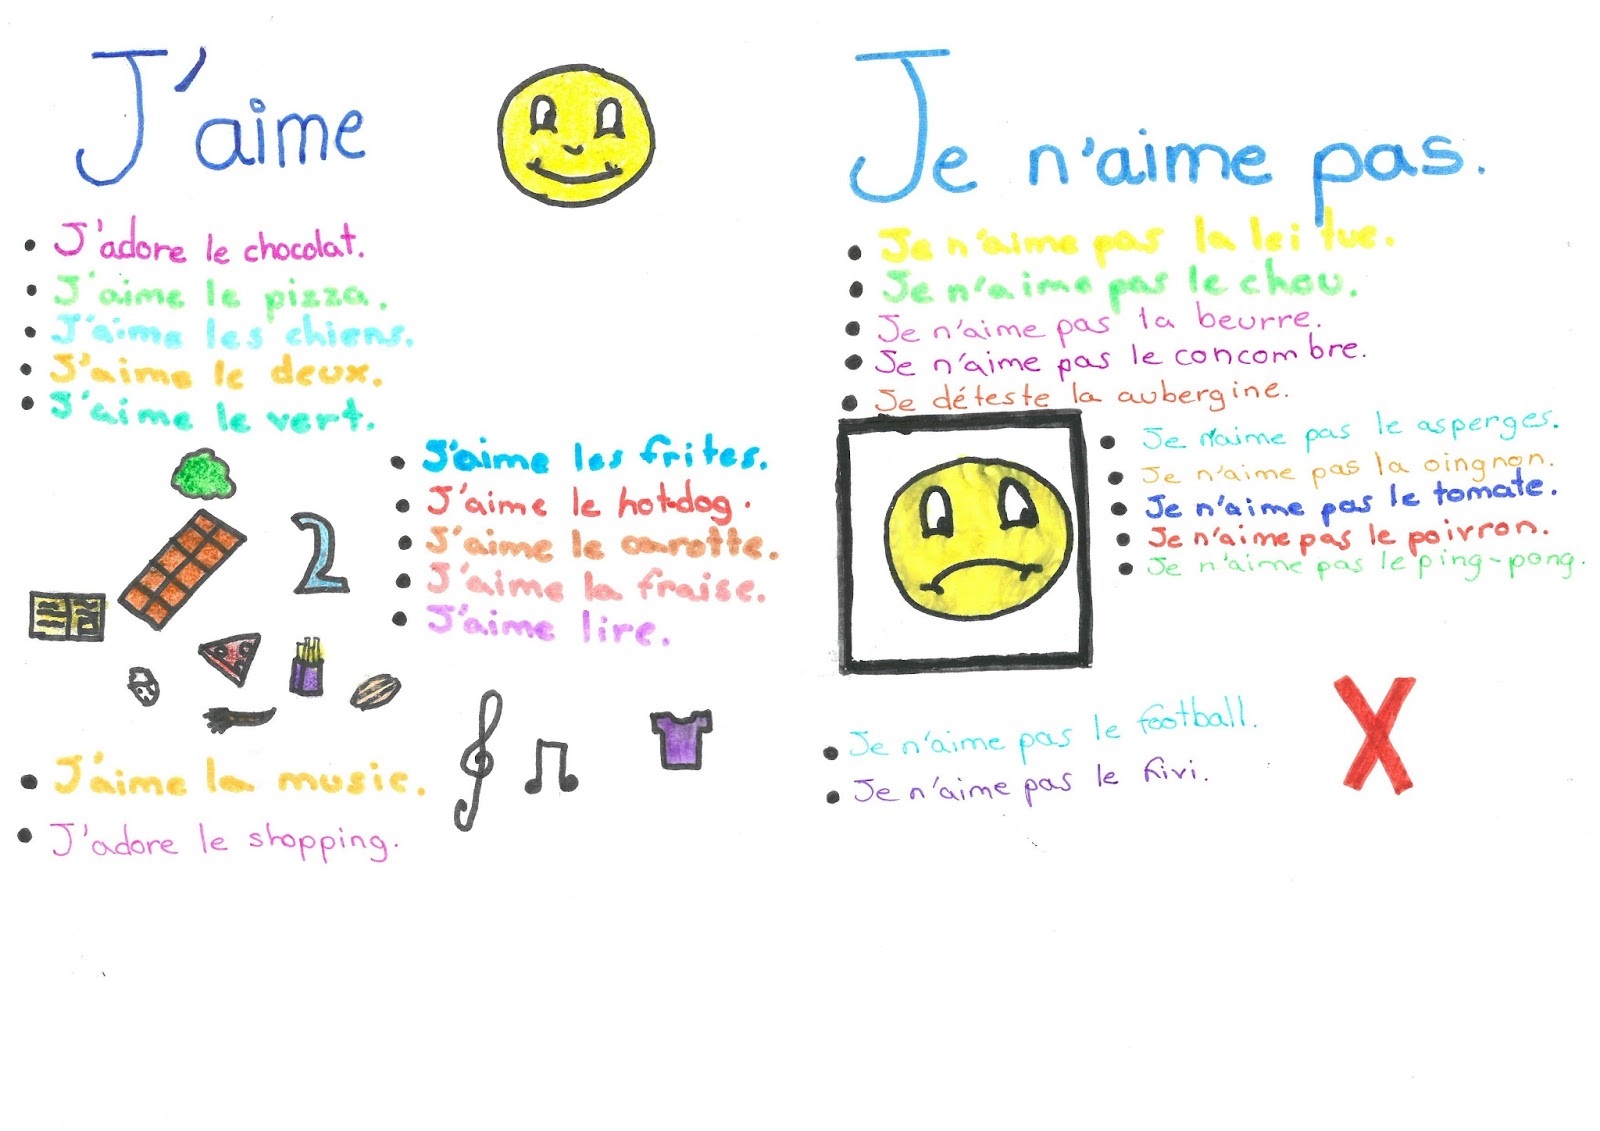 J'aime
J'adore le chocolat.
J'aime le pizza.
J'aime les chiens.
J'aime le deux.
J'aime le vert.
J'aime les frites.
J'aime le hot-dog.
J'aime le carotte.
J'aime la fraise.
J'aime lire.
2
J'aime la music.
J'adore le shopping.
Je n'aime pas.
Je n'aime pas la lei tue.
Je n'aime pas le chou.
Je n'aime pas la beurre.
Je n'aime pas le concombre.
Je déteste la aubergine.
Je n'aime pas le asperges.
Je n'aime pas la oingnon.
Je n'aime pas le tomate.
Je n'aime pas le poivron.
Je n'aime pas le ping-pong.
Je n'aime pas le football.
Je n'aime pas le kivi.
X